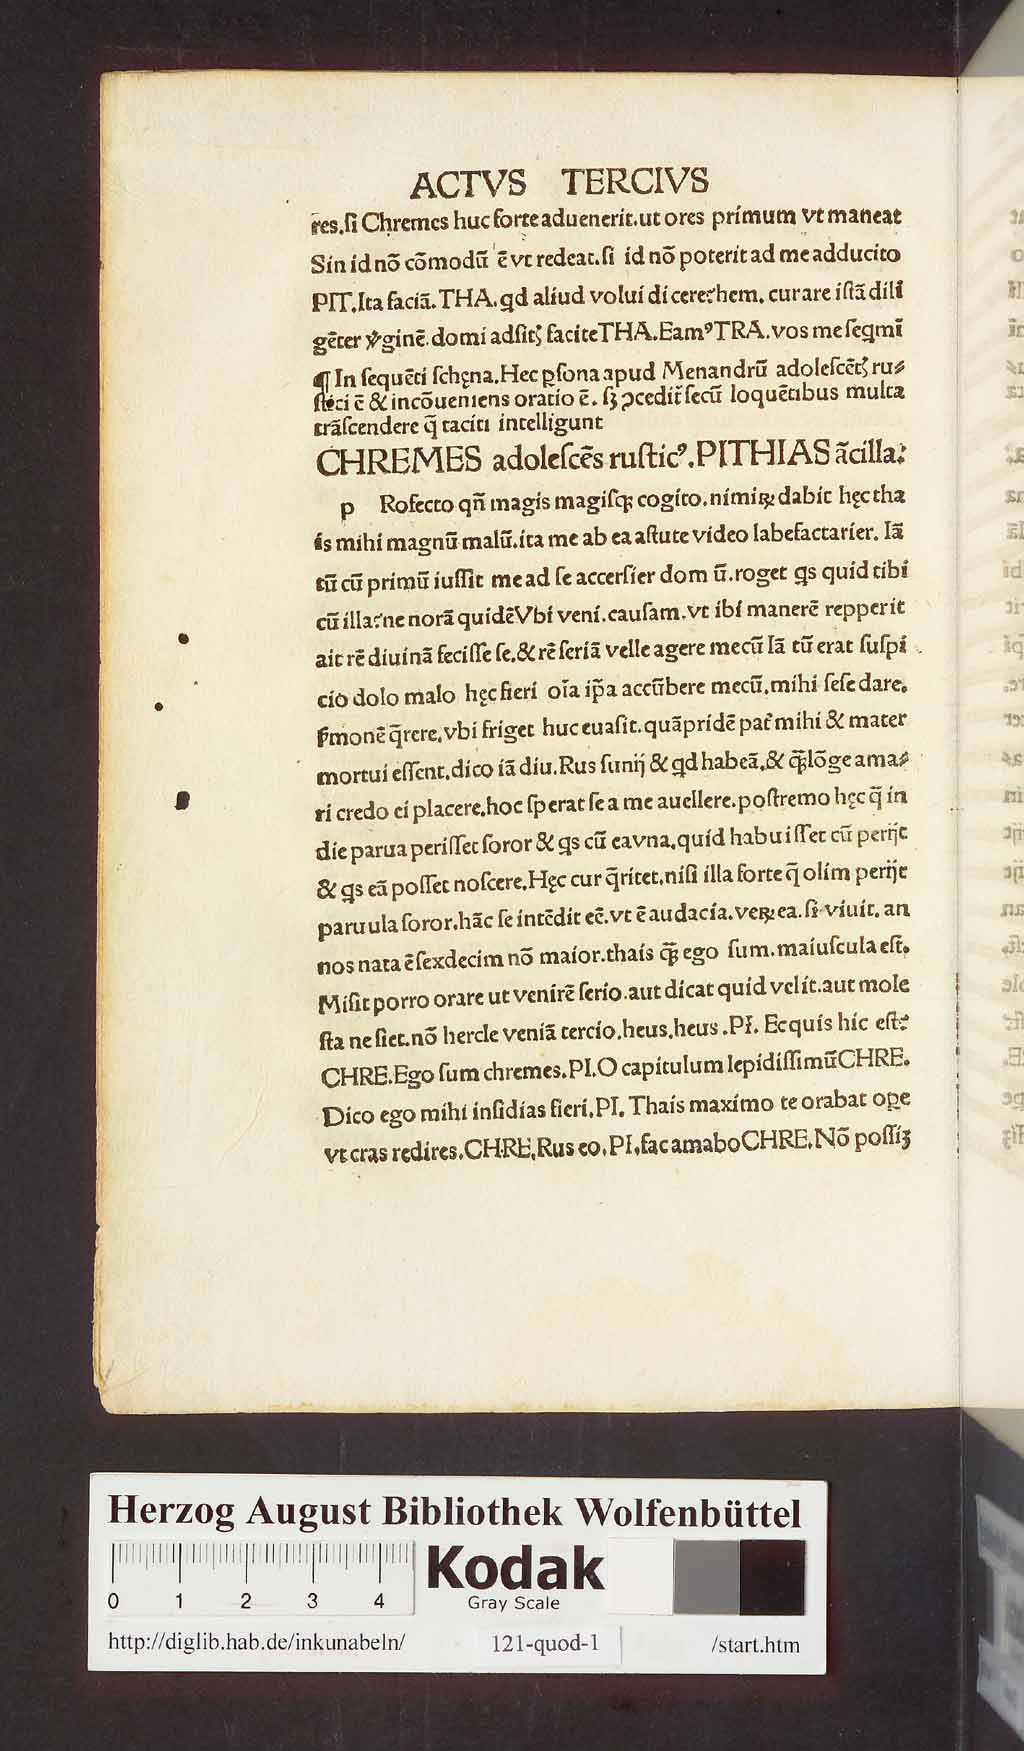 ACTVS TERCIVS
res.si Chremes huc forte aduenerit.ut ores primum vt maneat
Sin id nō cōmodū ē vt redeat.si id nō poterit ad me adducito
PIT.Ita faciā.THA.qd aliud volui dicere?hem.curare istā dili
gēter v̄ginē.domi adsitꝭ faciteTHA.Eamꝰ TRA.vos me seqmī
¶ In sequēti schęna.Hec ꝑsona apud Menandrū adolescētꝭ ru⸗
stici ē & incōueniens oratio ē. sꝫ ꝓcedit̄ secū loquētibus multa
trāscendere q̄ taciti intelligunt
CHREMES adolescēs rusticꝰ.PITHIAS ācilla?
p Rofecto qn̄ magis magisqꝫ cogito.nimiꝝ dabit hęc tha
is mihi magnū malū.ita me ab ea astute video labefactarier. Iā
tū cū primū iussit me ad se accersier dom ū.roget qs quid tibi
cū illa?ne norā quidēVbi veni.causam.vt ibi manerē repperit
ait rē diuinā fecisse se.& rē seriā velle agere mecū Iā tū erat suspi
cio dolo malo hęc fieri oīa ip̄a accūbere mecū.mihi sese dare.
s̄monē q̄rere.vbi friget huc euasit.quāpridē pat̄ mihi & mater
mortui essent.dico iā diu.Rus sunij & qd habeā.& q̄ lōge ama⸗
ri credo ei placere.hoc sperat se a me auellere.postremo hęc q̄ in
die parua perisset soror & qs cū ea vna.quid habuisset cū perijt
& qs eā posset noscere.Hęc cur q̄ritet.nisi illa forte q̄ olim perijt
paruula soror.hāc se intēdit eē.vt ē audacia.veꝝ ea.si viuit. an
nos nata ē sexdecim nō maior.thais q̄ꝫ ego sum.maiuscula est.
Misit porro orare ut venirē serio.aut dicat quid velit.aut mole
sta ne siet.nō hercle veniā tercio.heus,heus.PI. Ecquis hic est?
CHRE.Ego sum chremes.PI.O capitulum lepidissimūCHRE.
Dico ego mihi insidias fieri.PI. Thais maximo te orabat oꝑe
vt cras redires.CHRE.Rus eo.PI.fac amaboCHRE.Nō possiꝫ
Herzog August Bibliothek Wolfenbüttel
0 1 2 3 4
Kodak
Gray Scale
http://diglib.hab.de/inkunabeln/ 121-quod-1 /start.htm